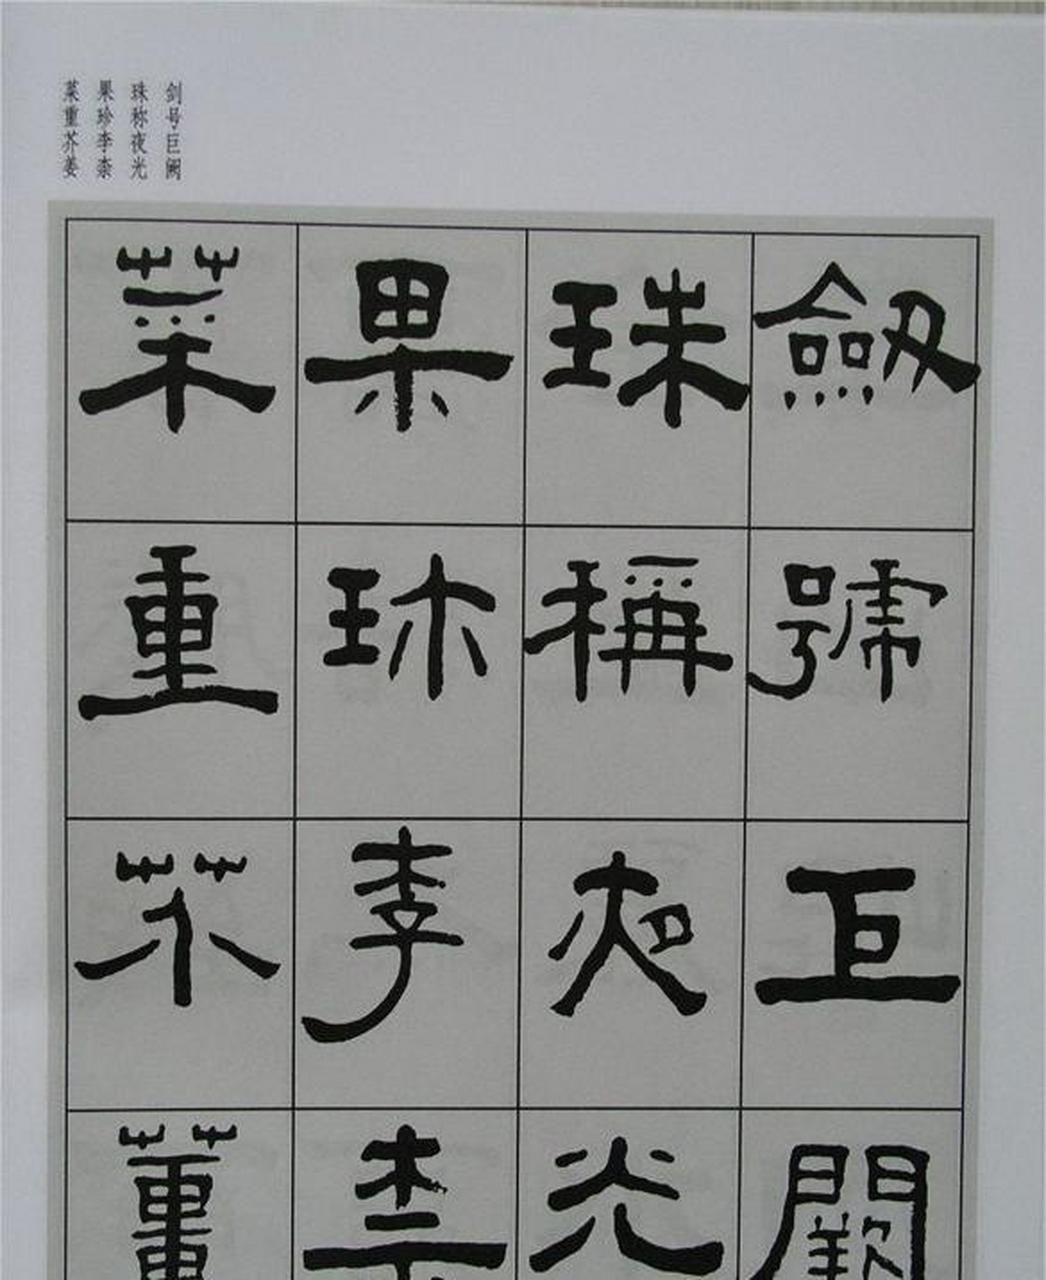 剑号巨阙
珠称夜光
果珍李柰
菜重芥姜
劒號巨闕
珠稱夜光
果珎李柰
菜重芥薑